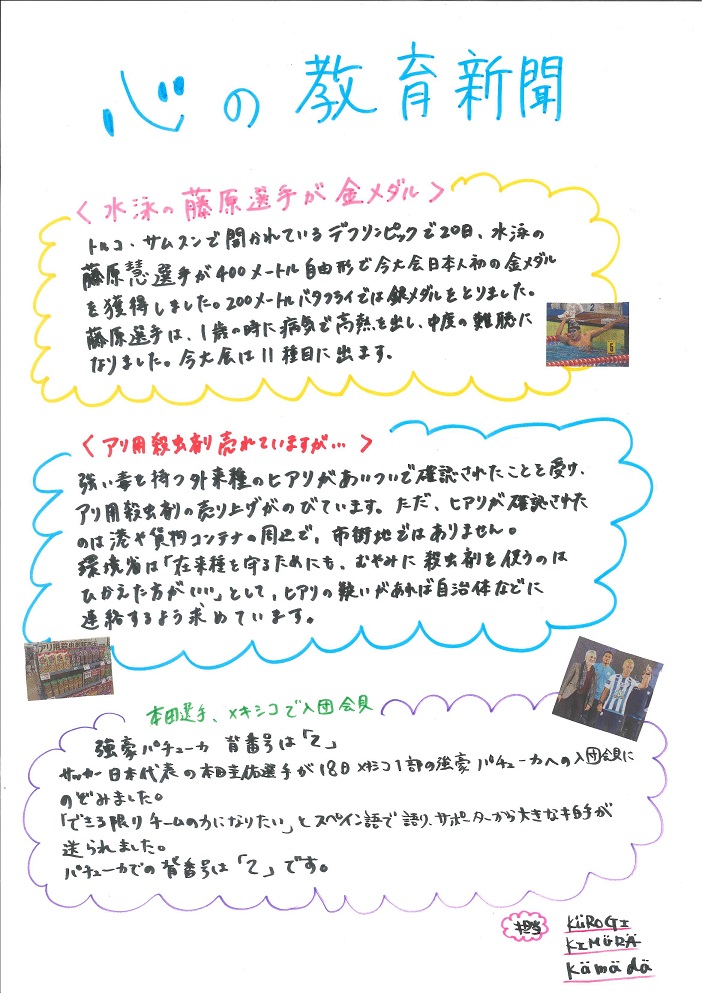 心の教育新聞
<水泳の藤原選手が金メダル>
トルコ・サムスンで開かれているデフリンピックで20日、水泳の
藤原慧選手が400メートル自由形で今大会日本人初の金メダル
を獲得しました。200メートルバタフライでは銀メダルをとりました。
藤原選手は、1歳の時に病気で高熱を出し、中度の難聴に
なりました。今大会は11種目に出ます。
<アリ用殺虫剤売れていますが…>
強い毒を持つ外来種のヒアリがあいついで確認されたことを受け、
アリ用殺虫剤の売り上げがのびています。ただ、ヒアリが確認された
のは港や貨物コンテナの周辺で、市街地ではありません。
環境省は「在来種を守るためにも、むやみに殺虫剤を使うのは
ひかえた方がいい」として、ヒアリの疑いがあれば自治体などに
連絡するよう求めています。
アリ用殺虫剤
本田選手、メキシコで入団会見
強豪パチューカ 背番号は「2」
サッカー日本代表の本田圭佑選手が18日メキシコ1部の強豪パチューカへの入団会見に
のぞみました。
「できる限りチームの力になりたい」とスペイン語で語り、サポーターから大きな拍手が
送られました。
パチューカでの背番号は「2」です。
担当
KÜROGI
KIMÜRÄ
Kämädä